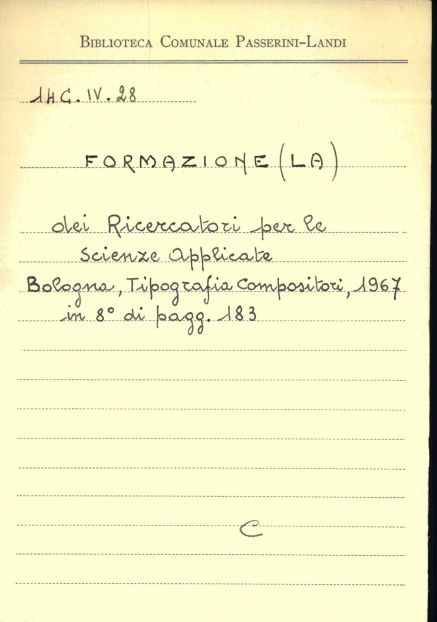 BIBLIOTECA COMUNALE PASSERINI-LANDI
14C.IV.28
FORMAZIONE (LA)
dei Ricercatori per le
Scienze Applicate
Bologna, Tipografia Compositori, 1967
in 8° di pagg. 183
C